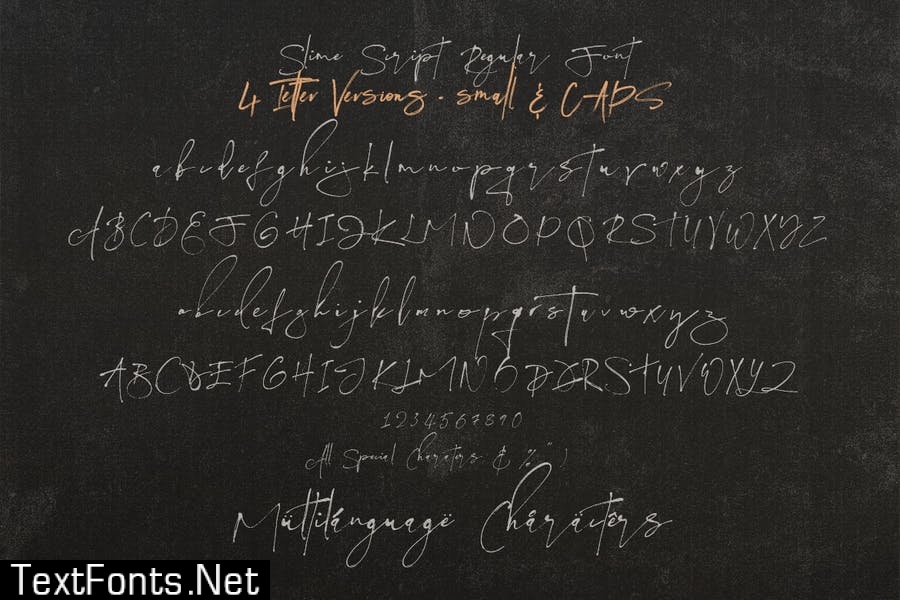 Slime Script Regular Font
4 letter Versions - small & CAPS
abcdefghijklmnopqrstuvwxyz
ABCDEFGHIJKLMNOPQRSTUVWXYZ
abcdefghijklmnopqrstuvwxyz
ABCDEFGHIJKLMNOPQRSTUVWXYZ
1234567890
All Special Charaters & % " )
Mültilánguagë Chåräctêrs
TextFonts.Net